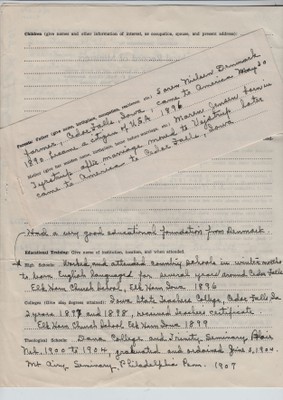 Children (give names and other information of interest, as occupation, spouse, and present address)
Parents: Father (give name, birthplace, occupation, residence, etc.) Soren Nielsen Denmark
farmer, Cedar Falls, Iowa, came to America May 20
1890 became a citizen of U.S.A. 1896
Mother (give her maiden name, birthplace, home before marriage, etc.) Maren Jensen born in
Tystrup after marriage moved to Vejstrup later
came to America to Cedar Falls, Iowa
Had a very good educational foundation from Denmark.
Educational Training: Give name of institution, location, and when attended
High Schools: Worked and attended country schools in winter months
to learn English languages for several years around Cedar Falls
Elk Horn Church School, Elk Horn Iowa 1896
Colleges (Give also degrees attained): Iowa State Teachers College, Cedar Falls Ia
2 years 1897 and 1898, received Teachers Certificate.
Elk Horn Church School Elk Horn Iowa 1899
Theological Schools: Dana College and Trinity Seminary, Blair
Neb. 1900 to 1904, graduated and ordained June 5, 1904.
Mt Airy Seminary, Philadelphia Penn. 1907